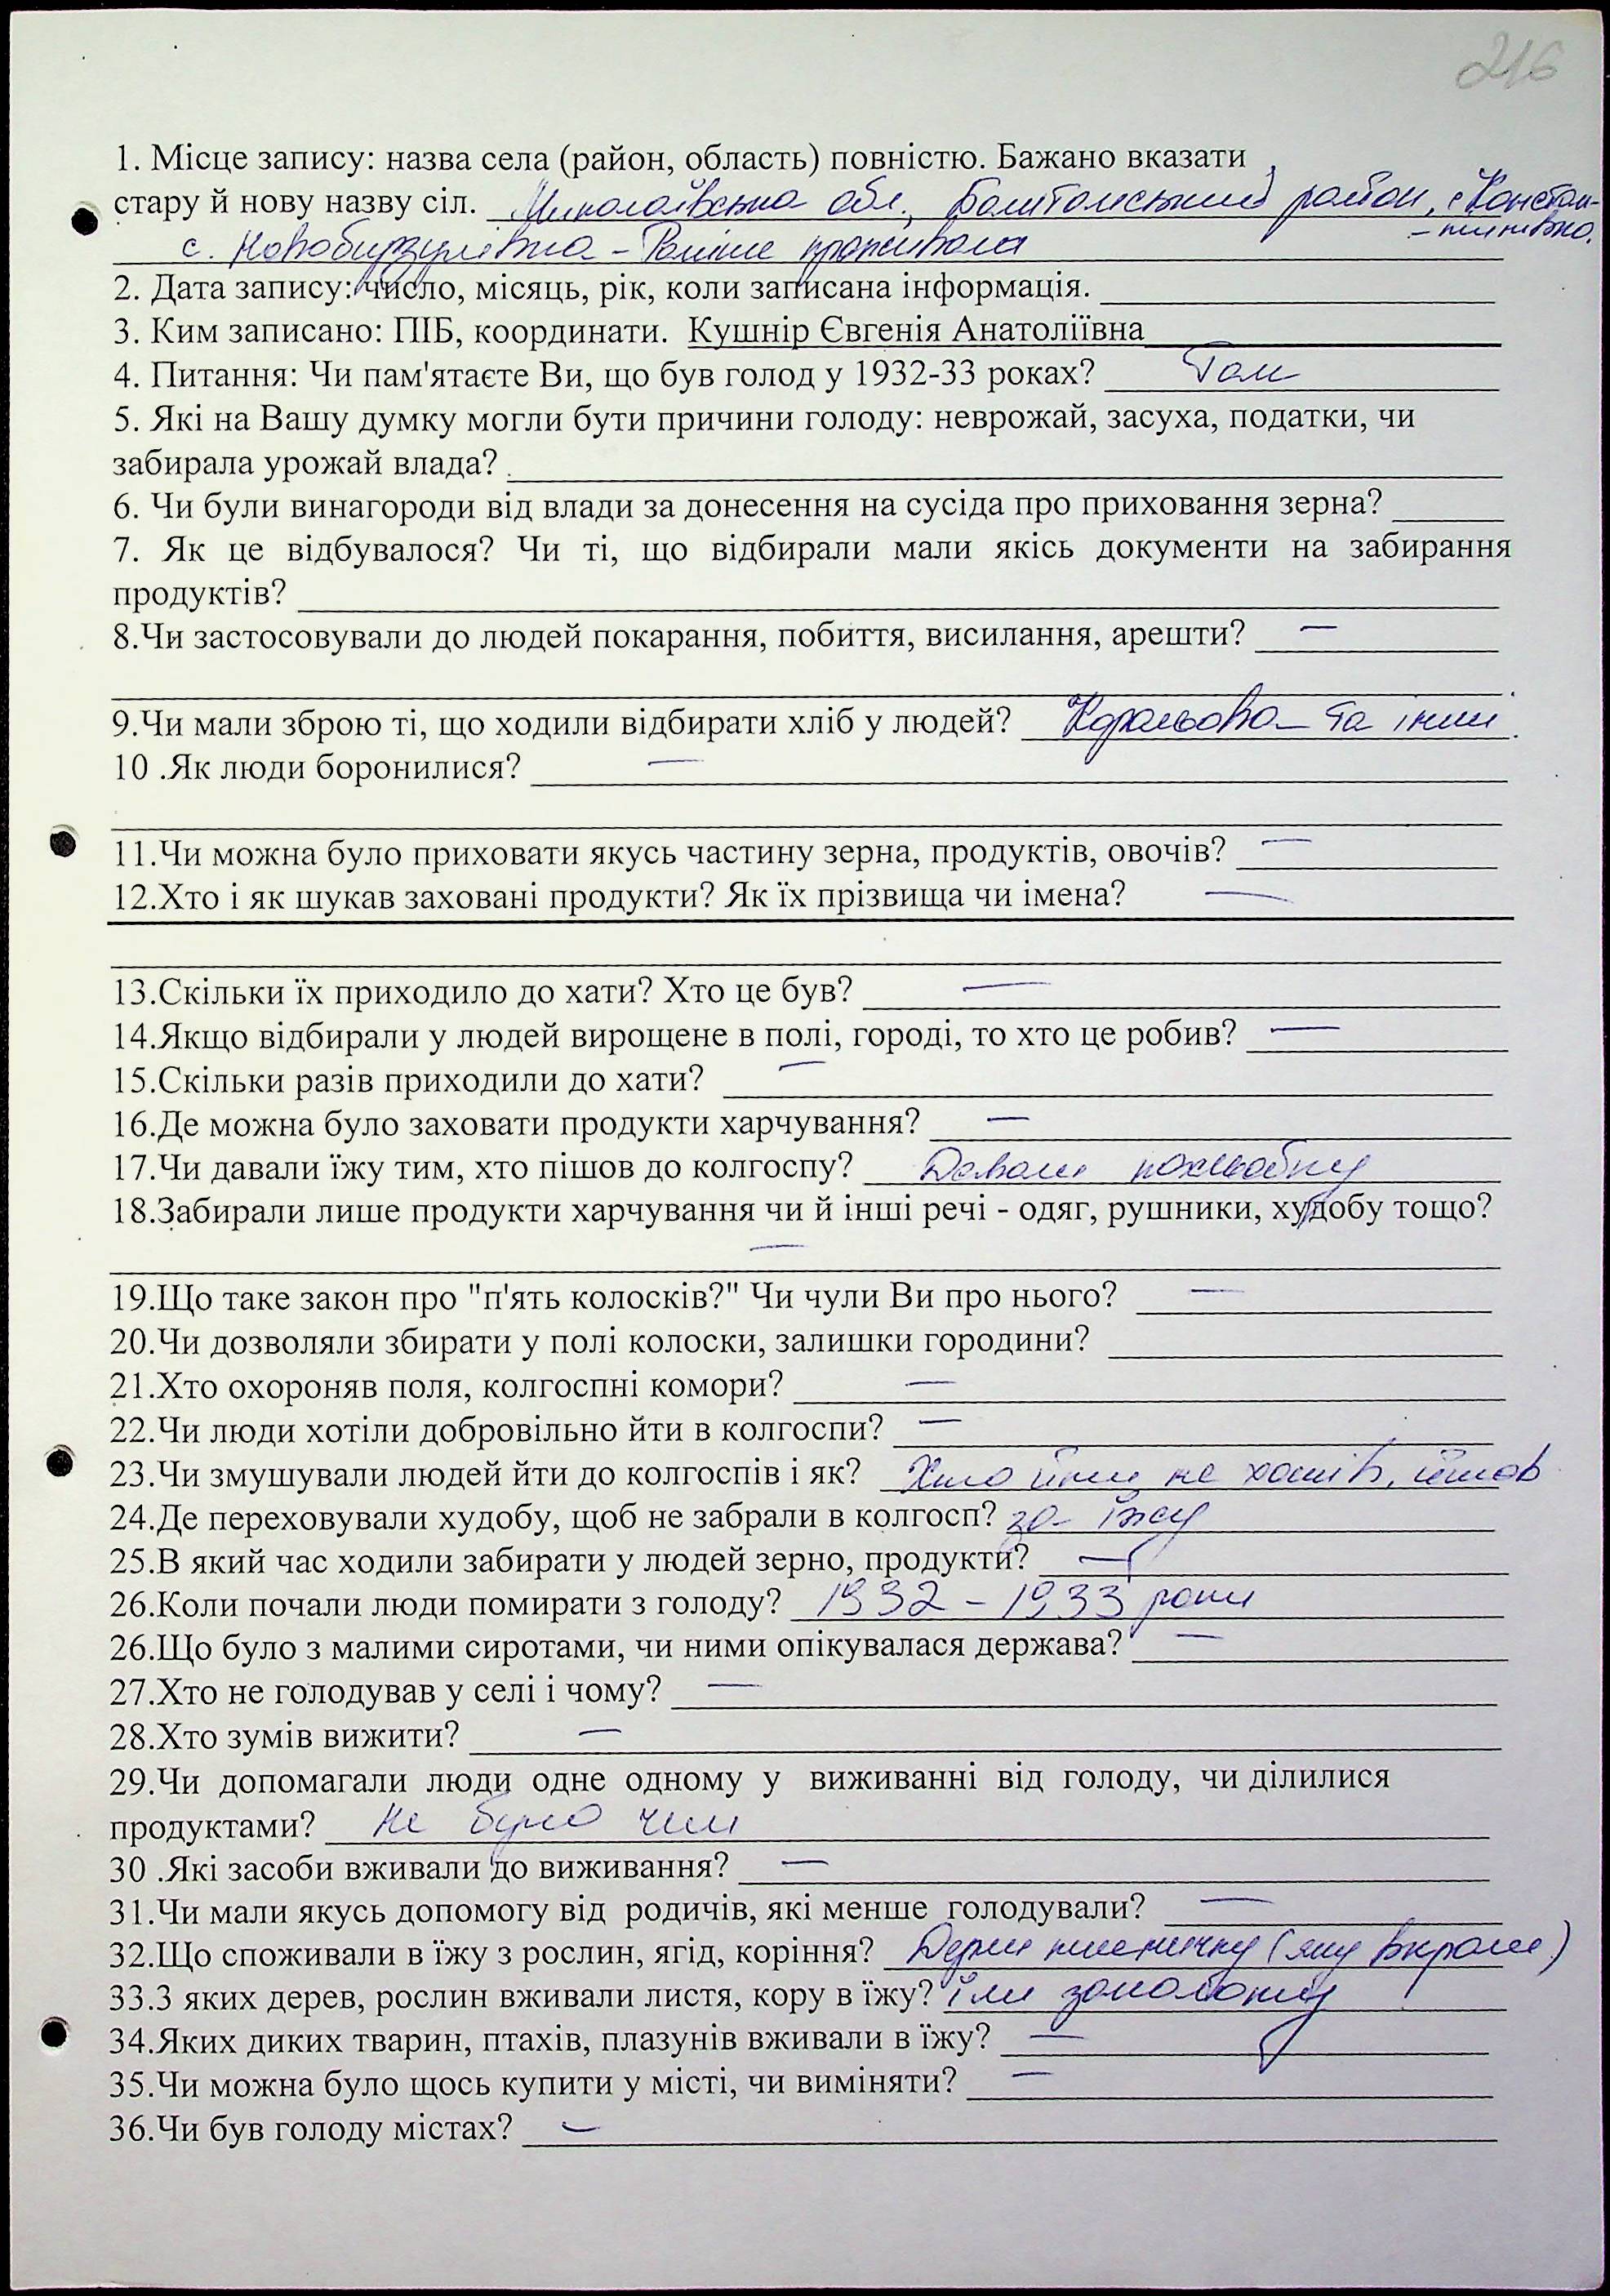 216
1. Місце запису: назва села (район, область) повністю. Бажано вказати
стару й нову назву сіл. Миколаївська обл., Баштанський район, с Констан-
- тинівка.
с. Новобирзулівка - Раніше проживала
2. Дата запису: число, місяць, рік, коли записана інформація.
3. Ким записано: ПІБ, координати. Кушнір Євгенія Анатоліївна
4. Питання: Чи пам'ятаєте Ви, що був голод у 1932-33 роках? Так
5. Які на Вашу думку могли бути причини голоду: неврожай, засуха, податки, чи
забирала урожай влада?
6. Чи були винагороди від влади за донесення на сусіда про приховання зерна?
7. Як це відбувалося? Чи ті, що відбирали мали якісь документи на забирання
продуктів?
8.Чи застосовували до людей покарання, побиття, висилання, арешти? —
9.Чи мали зброю ті, що ходили відбирати хліб у людей? Корольова та інші
10 .Як люди боронилися? —
11.Чи можна було приховати якусь частину зерна, продуктів, овочів? —
12.Хто і як шукав заховані продукти? Як їх прізвища чи імена? —
13.Скільки їх приходило до хати? Хто це був? —
14.Якщо відбирали у людей вирощене в полі, городі, то хто це робив? —
15.Скільки разів приходили до хати? —
16.Де можна було заховати продукти харчування? —
17.Чи давали їжу тим, хто пішов до колгоспу? Давали похльобку
18.Забирали лише продукти харчування чи й інші речі - одяг, рушники, худобу тощо?
—
19.Що таке закон про "п'ять колосків?" Чи чули Ви про нього? —
20.Чи дозволяли збирати у полі колоски, залишки городини?
21.Хто охороняв поля, колгоспні комори? —
22.Чи люди хотіли добровільно йти в колгоспи? —
23.Чи змушували людей йти до колгоспів і як? Хто йти не хотів, йшов
24.Де переховували худобу, щоб не забрали в колгосп? за їжу
25.В який час ходили забирати у людей зерно, продукти? —
26.Коли почали люди помирати з голоду? 1932 - 1933 роки
26.Що було з малими сиротами, чи ними опікувалася держава? —
27.Хто не голодував у селі і чому? —
28.Хто зумів вижити? —
29.Чи допомагали люди одне одному у виживанні від голоду, чи ділилися
продуктами? Не було чим
30 .Які засоби вживали до виживання? —
31.Чи мали якусь допомогу від родичів, які менше голодували? —
32.Що споживали в їжу з рослин, ягід, коріння? Дерли пшеничку (яку вкрали)
33.З яких дерев, рослин вживали листя, кору в їжу? їли
34.Яких диких тварин, птахів, плазунів вживали в їжу? —
35.Чи можна було щось купити у місті, чи виміняти? —
36.Чи був голоду містах? —